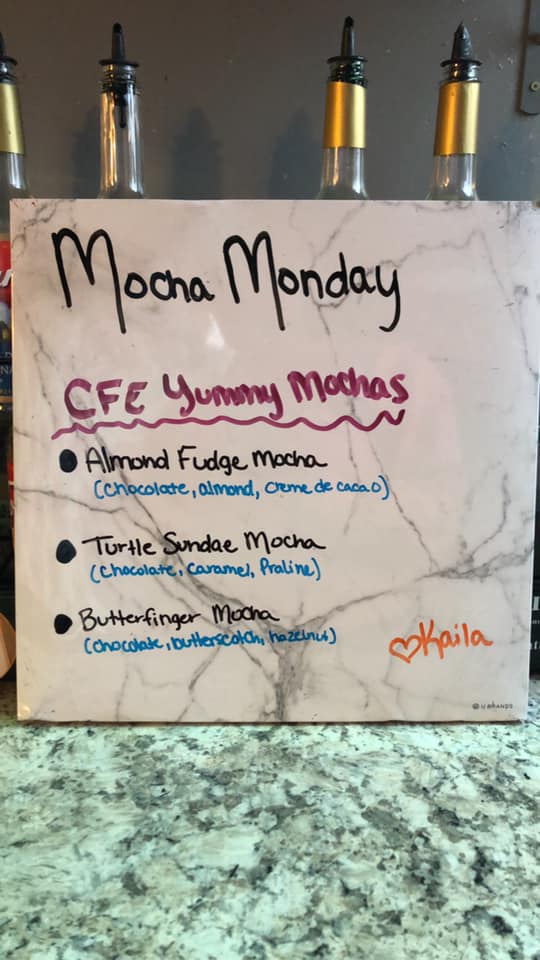 Mocha Monday
CFE Yummy Mochas
Almond Fudge Mocha
(Chocolate, almond, creme de cacao)
Turtle Sundae Mocha
(Chocolate, Caramel, Praline)
Butterfinger Mocha
(chocolate, butterscotch, hazelnut)
Kaila
U BRANDS